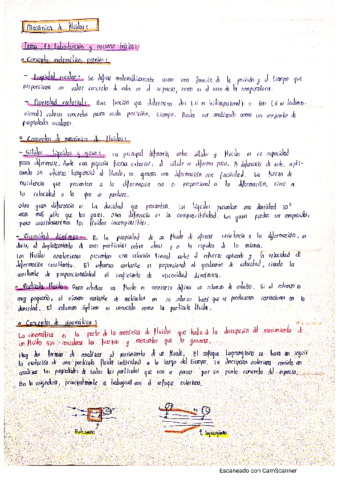 Mecánica de Fluidos:
Tema 1: Introducción y nociones básicas:
• Conceptos matemáticos previos:
- Propiedad escalar: Se define matemáticamente como una función de la posición y el tiempo que
proporciona un valor concreto de cada en el espacio, como es el caso de la temperatura.
- Propiedad vectorial: Una función que determina dos (si es bidimensional) o tres (si es tridimen-
sional) valores concretos para cada posición, tiempo. Puede ser analizado como un conjunto de
propiedades escalares
• Conceptos de mecánica de fluidos:
- Sólidos, líquidos y gases: La principal diferencia entre sólido y fluido es su capacidad
para deformarse. Ante una pequeña fuerza exterior, el sólido se deforma poco. A diferencia de este, apli-
cando un esfuerzo tangencial al fluido, se genera una deformación con facilidad. La fuerza de
resistencia que presentan a la deformación no es proporcional a la deformación, sino a
la velocidad a la que se produce.
Otra gran diferencia es la densidad que presentan. Los líquidos presentan una densidad 10³
veces más alta que los gases. Otra diferencia es la compresibilidad. Los gases pueden ser comprimidos,
pero consideraremos los fluidos incompresibles.
- Viscosidad dinámica: Es la propiedad de un fluido de oponer resistencia a la deformación, es
decir, al desplazamiento de unas partículas sobre otras y a la rapidez de la misma.
Los fluidos newtonianos presentan una relación lineal entre el esfuerzo aplicado y la velocidad de
deformación resultante. El esfuerzo cortante es proporcional al gradiente de velocidad, siendo la
constante de proporcionalidad el coeficiente de viscosidad dinámica.
- Partícula fluida: Para estudiar un fluido es necesario definir un volumen de estudio. Si el volumen es
muy pequeño, el número variante de moléculas en su interior hará que se produzcan variaciones en la
densidad. El volumen óptimo es conocido como la partícula fluida.
• Conceptos de cinemática:
La cinemática es la parte de la mecánica de fluidos que trata de la descripción del movimiento de
un fluido sin considerar las fuerzas y momentos que lo generan.
Hay dos formas de analizar el movimiento de un fluido. El enfoque Lagrangiano se basa en seguir
la evolución de una partícula fluida individual a lo largo del tiempo. La descripción euleriana consiste en
analizar las propiedades de todas las partículas que van a pasar por un punto concreto del espacio.
En la asignatura, principalmente se trabajará con el enfoque euleriano.
Euleriano
Lagrangiano
Escaneado con CamScanner